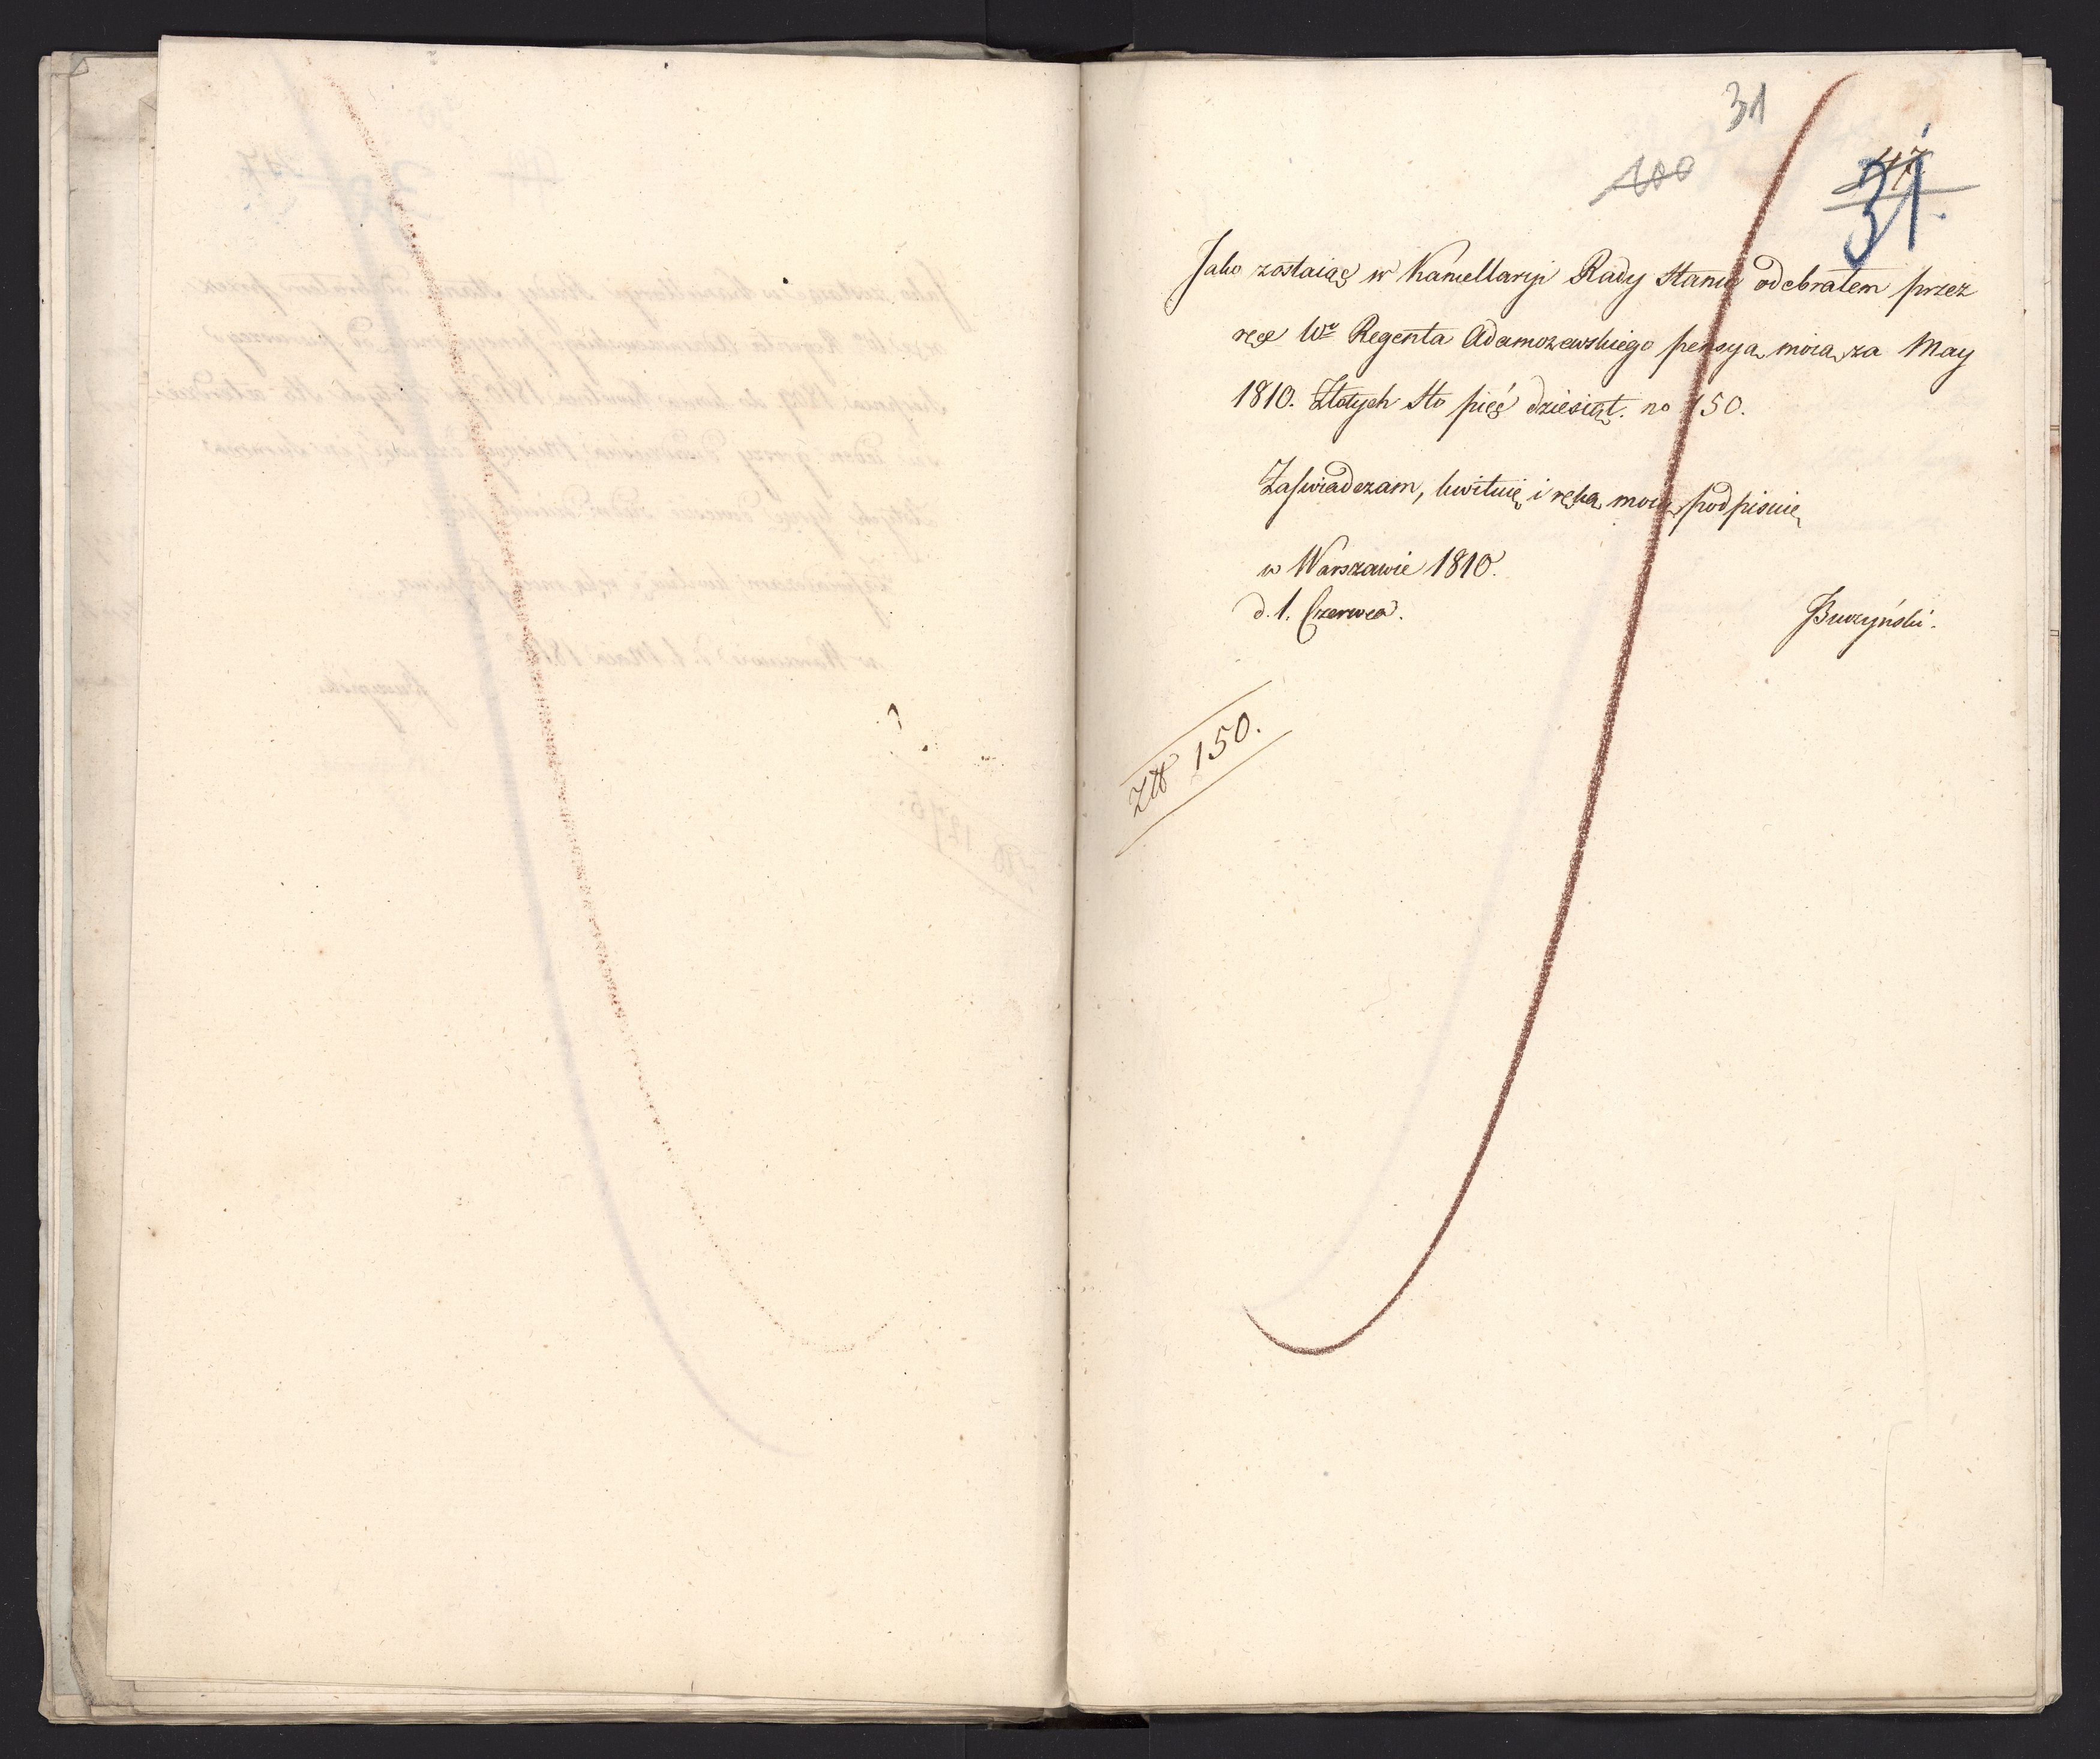 31
100
47
31.
Jako zostaiąc w Kancellaryi Rady Stanu odebrałem przez
ręce Wo Regenta Adamczewskiego pensyą moią za May
1810. Złotych Sto pięć dziesiąt. no 150.
Zaświadczam, kwituię i ręką moią podpisuię
w Warszawie 1810.
d. 1. Czerwca.
Buczyński.
Złt 150.